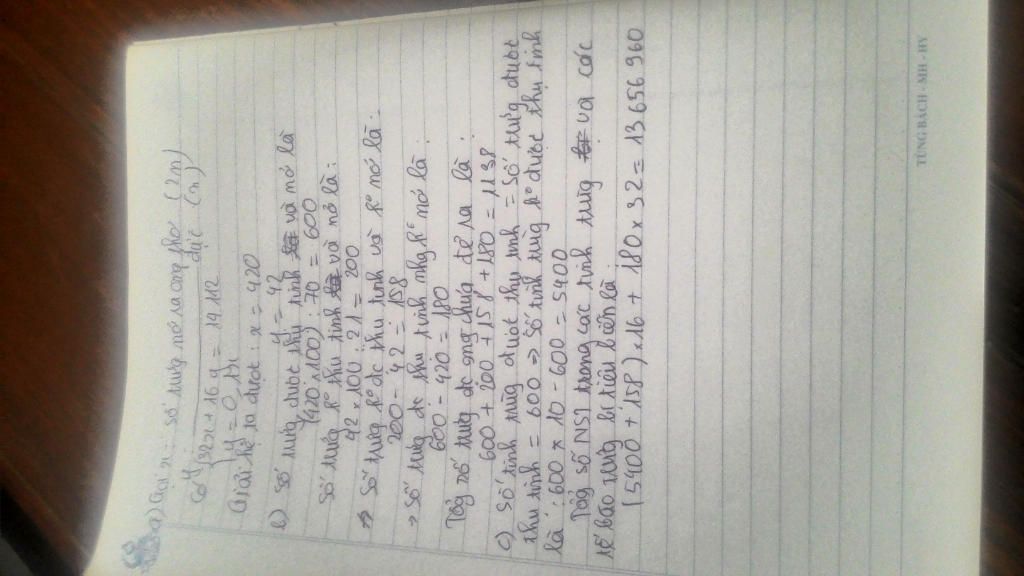 a) Gọi x: số trứng nở ra ong thợ (2n)
Gọi y: đực (n)
32x + 16y = 14112
y = 0,1x
Giải hệ ta được: x = 420
y = 42
b) Số trứng được thụ tinh và nở là
(420 x 100) : 70 = 600
Số trứng ko thụ tinh và nở là:
42 x 100 : 21 = 200
=> Số trứng ko đc thụ tinh và ko nở là:
200 - 42 = 158
-> Số trứng đc thụ tinh nhg ko nở là:
600 - 420 = 180
Tổg số trứg do ong chúa đẻ ra là:
600 + 200 + 158 + 180 = 1138
c) Số tinh trùng được thụ tinh = số trứng được
thụ tinh = 600 => số tinh trùg ko được thụ tinh
là: 600 x 10 - 600 = 5400
Tổng số NST trong các tinh trùng và các
tế bào trứng bị tiêu biến là:
(5400 + 158) x 16 + 180 x 32 = 13 656 960
TÙNG BÁCH - MH - HY